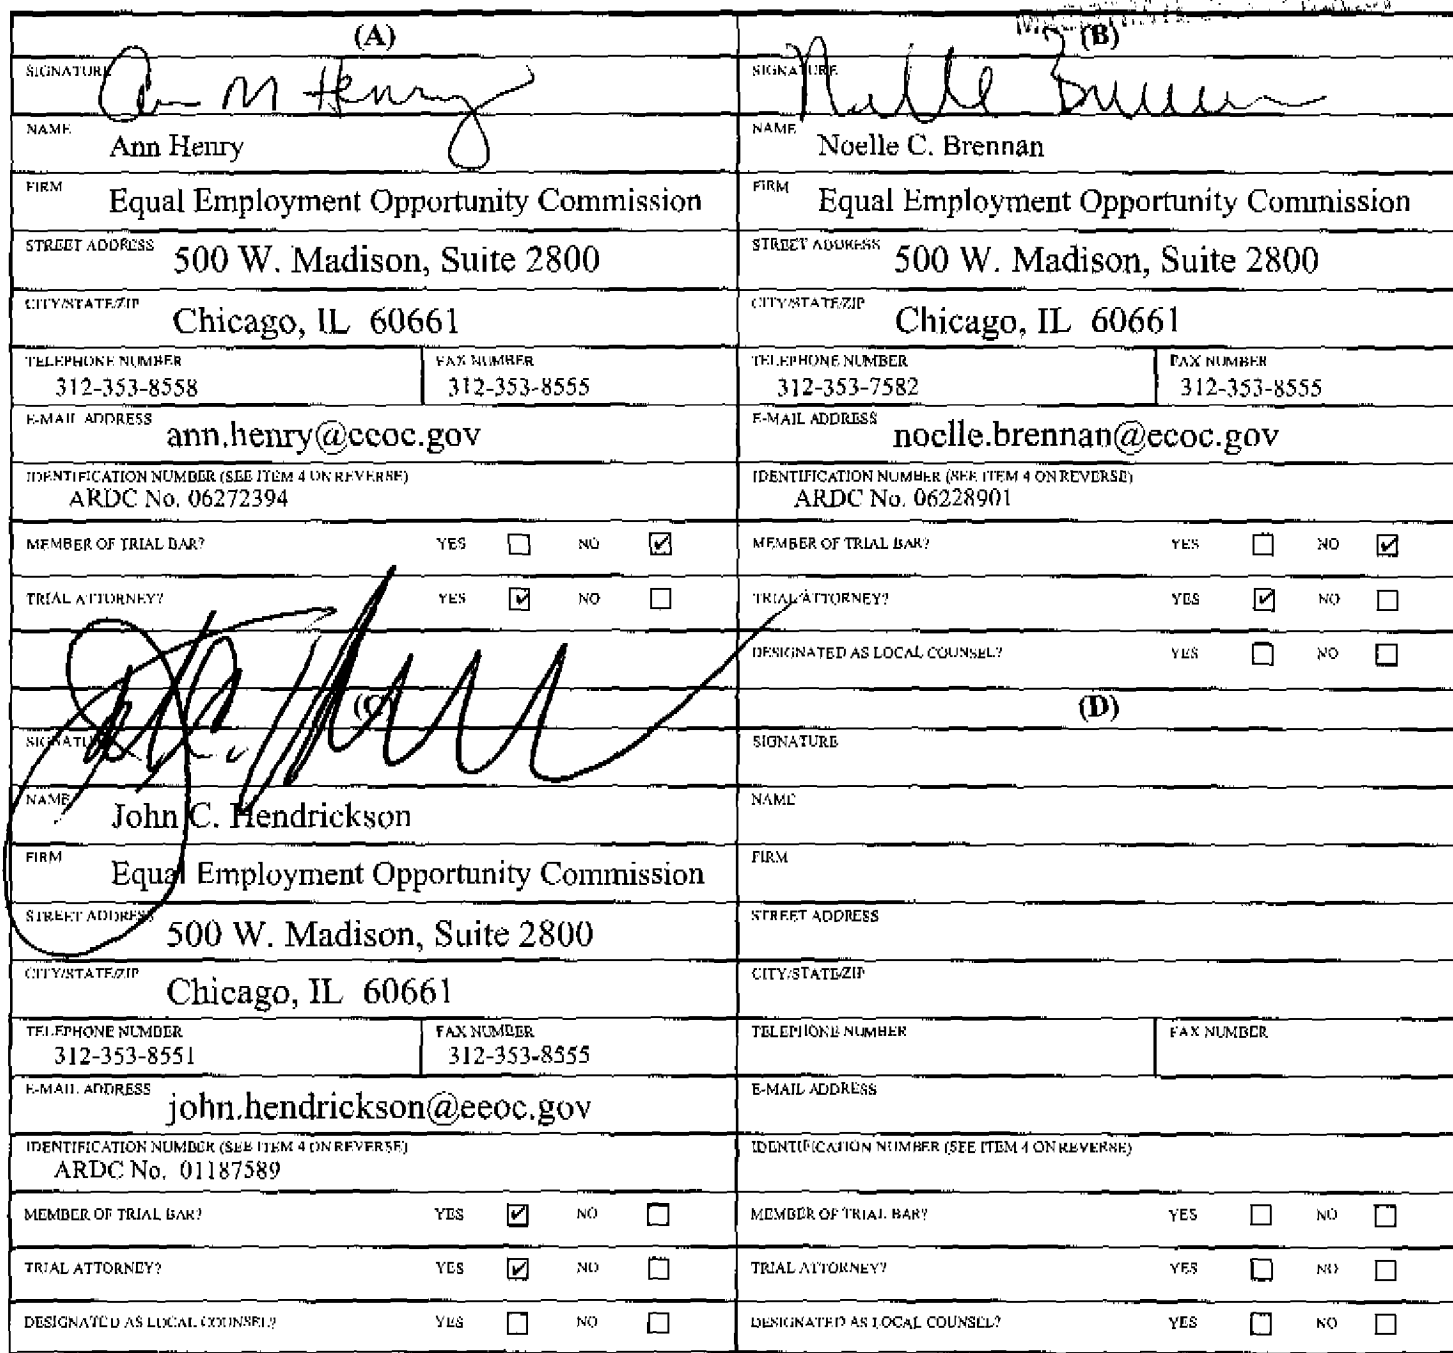 (A)
SIGNATURE Ann M Henry
NAME Ann Henry
FIRM Equal Employment Opportunity Commission
STREET ADDRESS 500 W. Madison, Suite 2800
CITY/STATE/ZIP Chicago, IL 60661
TELEPHONE NUMBER 312-353-8558
FAX NUMBER 312-353-8555
E-MAIL ADDRESS ann.henry@eeoc.gov
IDENTIFICATION NUMBER (SEE ITEM 4 ON REVERSE)
ARDC No. 06272394
MEMBER OF TRIAL BAR? YES NO
TRIAL ATTORNEY? YES NO
(B)
SIGNATURE Noelle Brennan
NAME Noelle C. Brennan
FIRM Equal Employment Opportunity Commission
STREET ADDRESS 500 W. Madison, Suite 2800
CITY/STATE/ZIP Chicago, IL 60661
TELEPHONE NUMBER 312-353-7582
FAX NUMBER 312-353-8555
E-MAIL ADDRESS noelle.brennan@eeoc.gov
IDENTIFICATION NUMBER (SEE ITEM 4 ON REVERSE)
ARDC No. 06228901
MEMBER OF TRIAL BAR? YES NO
TRIAL ATTORNEY? YES NO
DESIGNATED AS LOCAL COUNSEL? YES NO
(C)
SIGNATURE
NAME John C. Hendrickson
FIRM Equal Employment Opportunity Commission
STREET ADDRESS 500 W. Madison, Suite 2800
CITY/STATE/ZIP Chicago, IL 60661
TELEPHONE NUMBER 312-353-8551
FAX NUMBER 312-353-8555
E-MAIL ADDRESS john.hendrickson@eeoc.gov
IDENTIFICATION NUMBER (SEE ITEM 4 ON REVERSE)
ARDC No. 01187589
MEMBER OF TRIAL BAR? YES NO
TRIAL ATTORNEY? YES NO
DESIGNATED AS LOCAL COUNSEL? YES NO
(D)
SIGNATURE
NAME
FIRM
STREET ADDRESS
CITY/STATE/ZIP
TELEPHONE NUMBER
FAX NUMBER
E-MAIL ADDRESS
IDENTIFICATION NUMBER (SEE ITEM 4 ON REVERSE)
MEMBER OF TRIAL BAR? YES NO
TRIAL ATTORNEY? YES NO
DESIGNATED AS LOCAL COUNSEL? YES NO